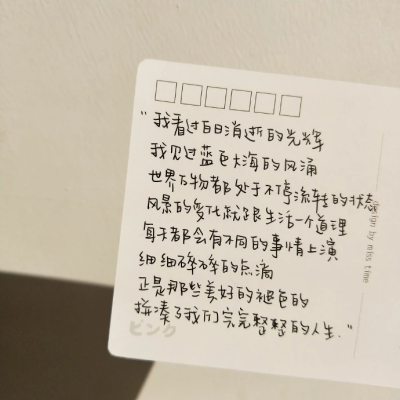 “我看过白日消逝的光辉
我见过蓝色大海的风涌
世界万物都处于不停流转的状态
风景的变化就跟生活一个道理
每天都会有不同的事情上演
细细碎碎的点滴
正是那些美好的褪色的
拼凑了我们完完整整的人生.”
ピンク
design by miss time